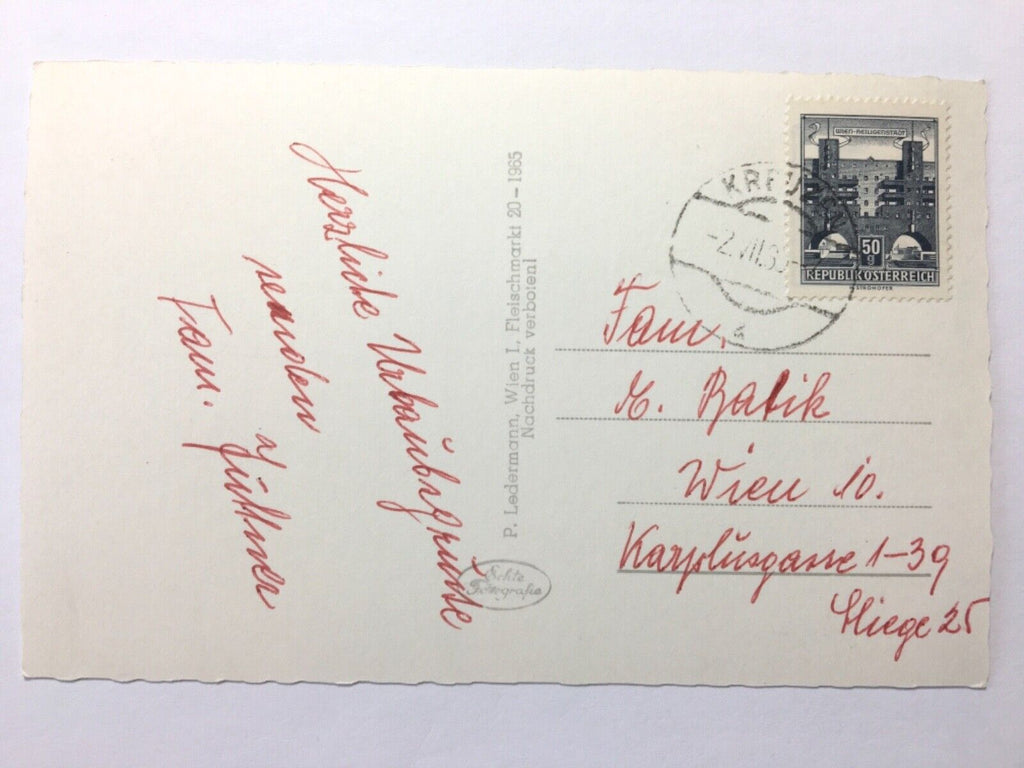 Herzliche Urlaubsgrüße
senden
Fam.
P. Ledermann, Wien I, Fleischmarkt 20 – 1965
Nachdruck verboten!
Echte
Fotografie
WIEN-HEILIGENSTADT
50
g
REPUBLIK ÖSTERREICH
-2.VII.
Fam.
Batik
Wien 10.
Karplusgasse 1–39
Stiege 25